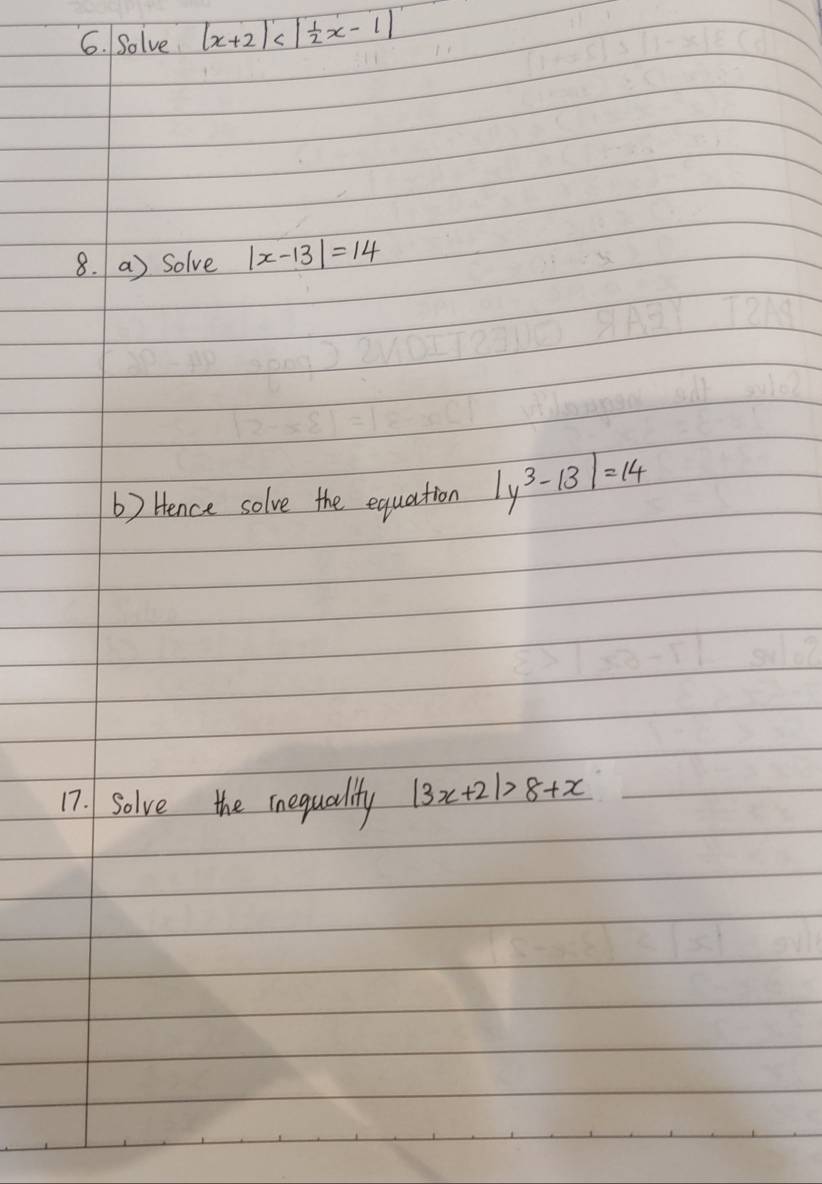 6. Solve |x+2| < |½x - 1|
8. a) Solve |x-13| = 14
b) Hence solve the equation |y³-13| = 14
17. Solve the inequality |3x+2| > 8+x